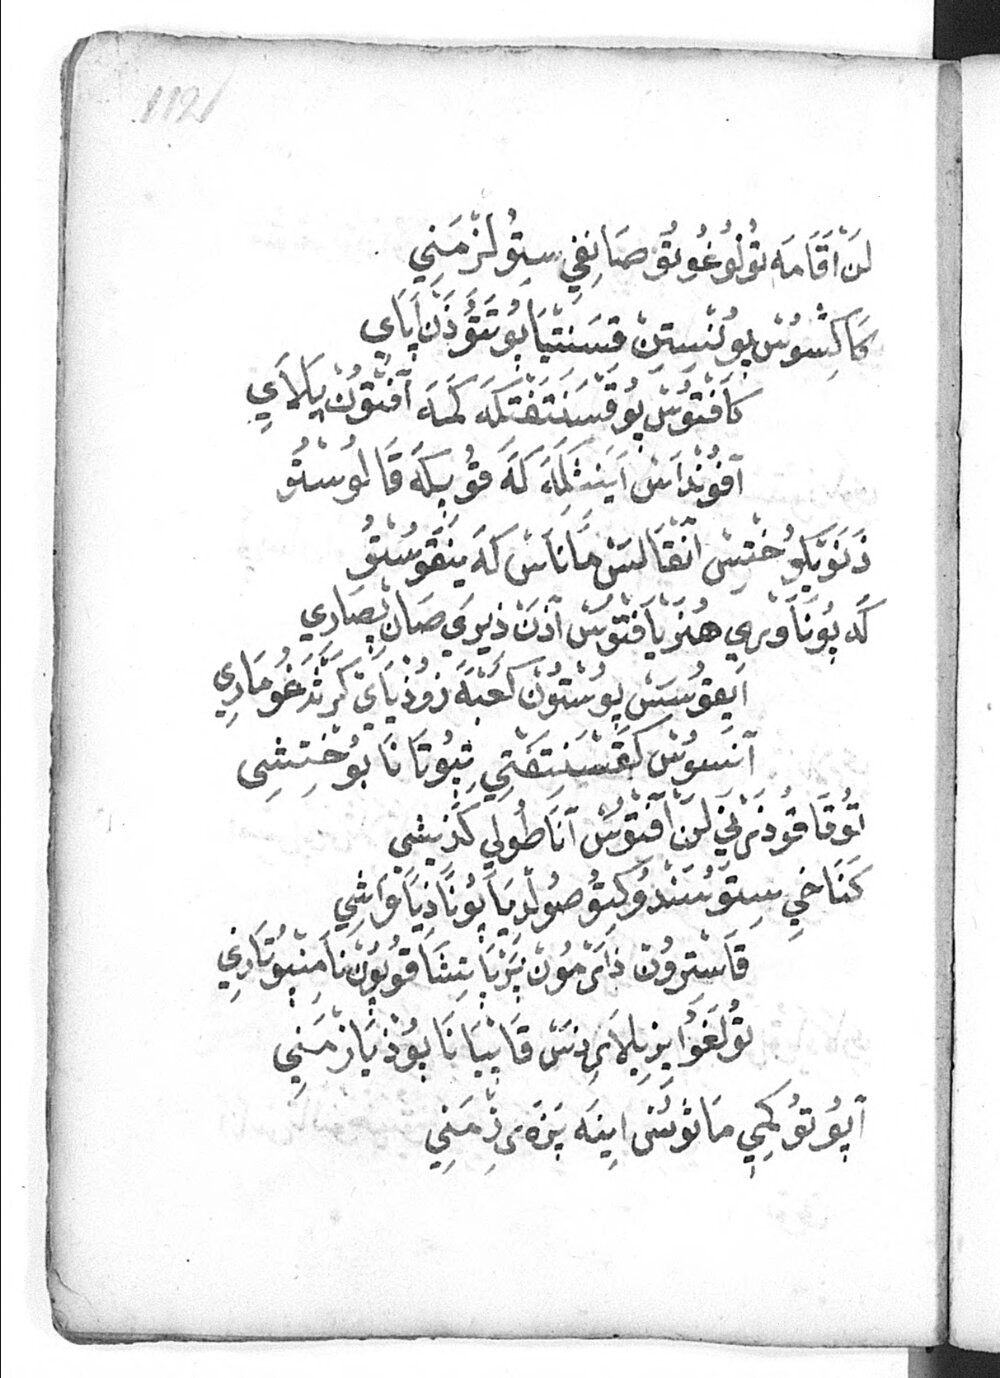 112
لَنْ آقَامَه تُولُوغُوتُو صَانِفِي سِتُولَزْمَنِي
كَاكِشُوسْ پُولُنْسِتِنْ قِسَنْتِيَا پُوتَتُوذَنْ آپَاي
كَافْتُوسْ پُوقْسَنَتَفْتَكَه كَمَه آفْتُونْ پَلَايِ
آفُونْدَاسْ آيَنِثْلِمَه كَه قُوپِكَه قَالُوسْتُو
ذَنَوَيَكُو خْتِسْ آنْقَالِسْ مَانَاسْ كَه يَنِقُوسْتُو
كَه پُونَاوِرِي هُنَرْيَافْتُوسْ آذَنْ ذِيرِي صَانْ پَصَارِي
آيِقُوسَسْ پُوسْتُونْ كَعْبَه زُوذِيَايْ كَرْثَذَغُومَارِي
آنْسُوسْ كَقْسَنِتَفْتِي ثِپُوتَانَا پُوخْتِشِي
تُوقَاقُوذَرْنِي لَنْ آفْتُوسْ آنَاطُولِي كَذِيشِي
كَنَاخِي سِتُوسَنْدُوكِتُو صُولْذِيَا پُونَاذِيَافَاشِي
قَاسْتِرُونْ ذَارْمُونْ بَزْيَا تِشَاقُوپُونْ نَامِنْپُوتَارِغِي
تُولَغُوا يِزِيلَارِذِسْ قَاپِيَانَا پُوذِيَازْمَنِي
آپُوتُوكِمِي مَاثُوسُنْ اِينَه پَزَه ىِ ذِمَنِي